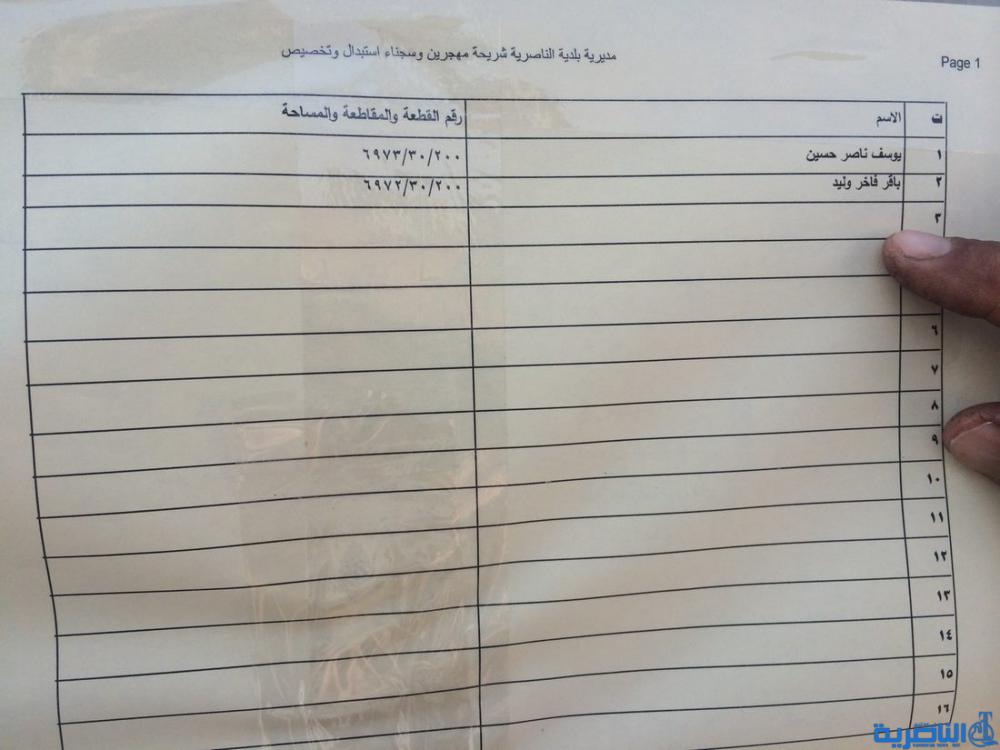 Page 1
مديرية بلدية الناصرية شريحة مهجرين وسجناء استبدال وتخصيص
ت الاسم رقم القطعة والمقاطعة والمساحة
١ يوسف ناصر حسين ٦٩٧٣/٣٠/٢٠٠
٢ باقر فاخر وليد ٦٩٧٢/٣٠/٢٠٠
٣
٦
٧
٨
٩
١٠
١١
١٢
١٣
١٤
١٥
١٦
الناصرية